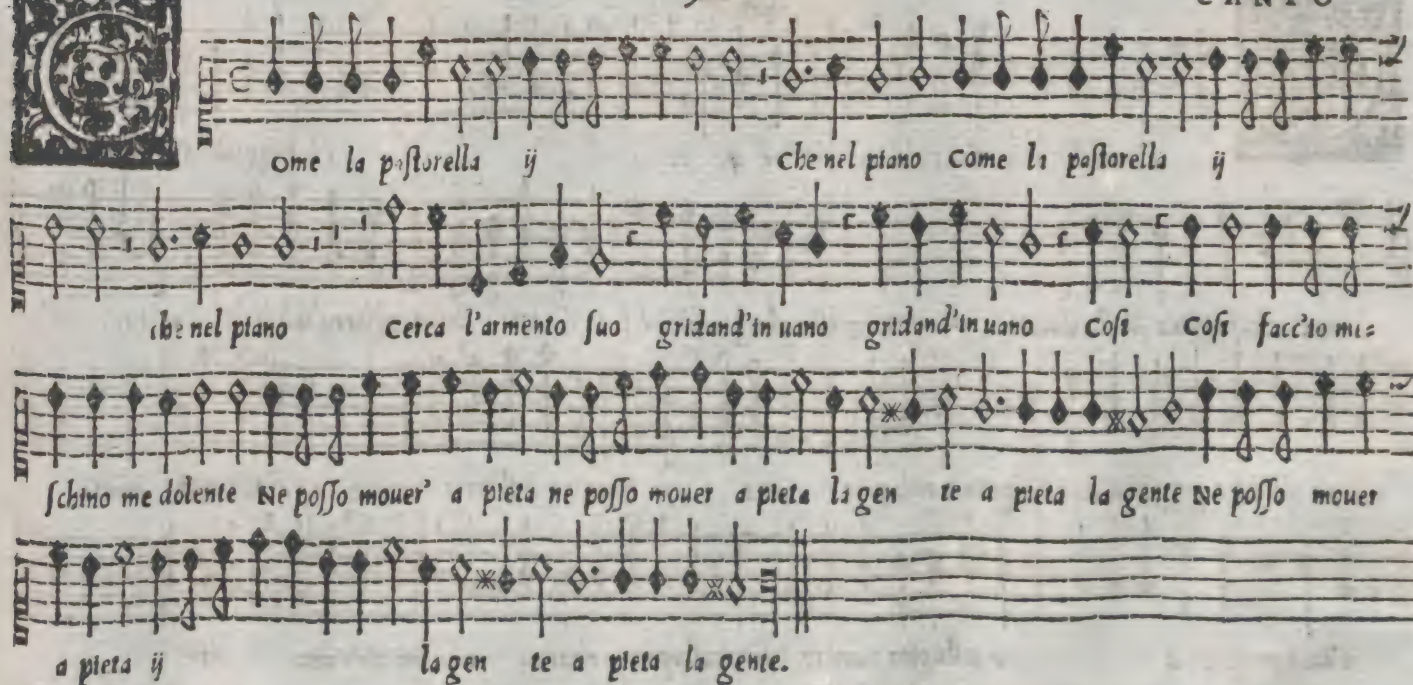 CANTO
Come la pastorella ij Che nel piano Come la pastorella ij
che nel piano Cerca l'armento suo gridand'in uano gridand'in uano Cosi Cosi facc'io mi=
schino me dolente Ne posso mouer' a pieta ne posso mouer a pieta la gen te a pieta la gente Ne posso mouer
a pieta ij la gen te a pieta la gente.